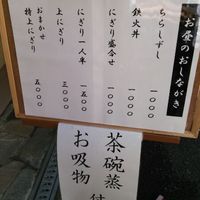 お昼のおしながき
ちらしずし 一〇〇〇
鉄火丼 一〇〇〇
にぎり盛合せ 一〇〇〇
にぎり一人半 一五〇〇
上にぎり 三〇〇〇
おまかせ
特上にぎり 五〇〇〇
茶碗蒸
お吸物
付